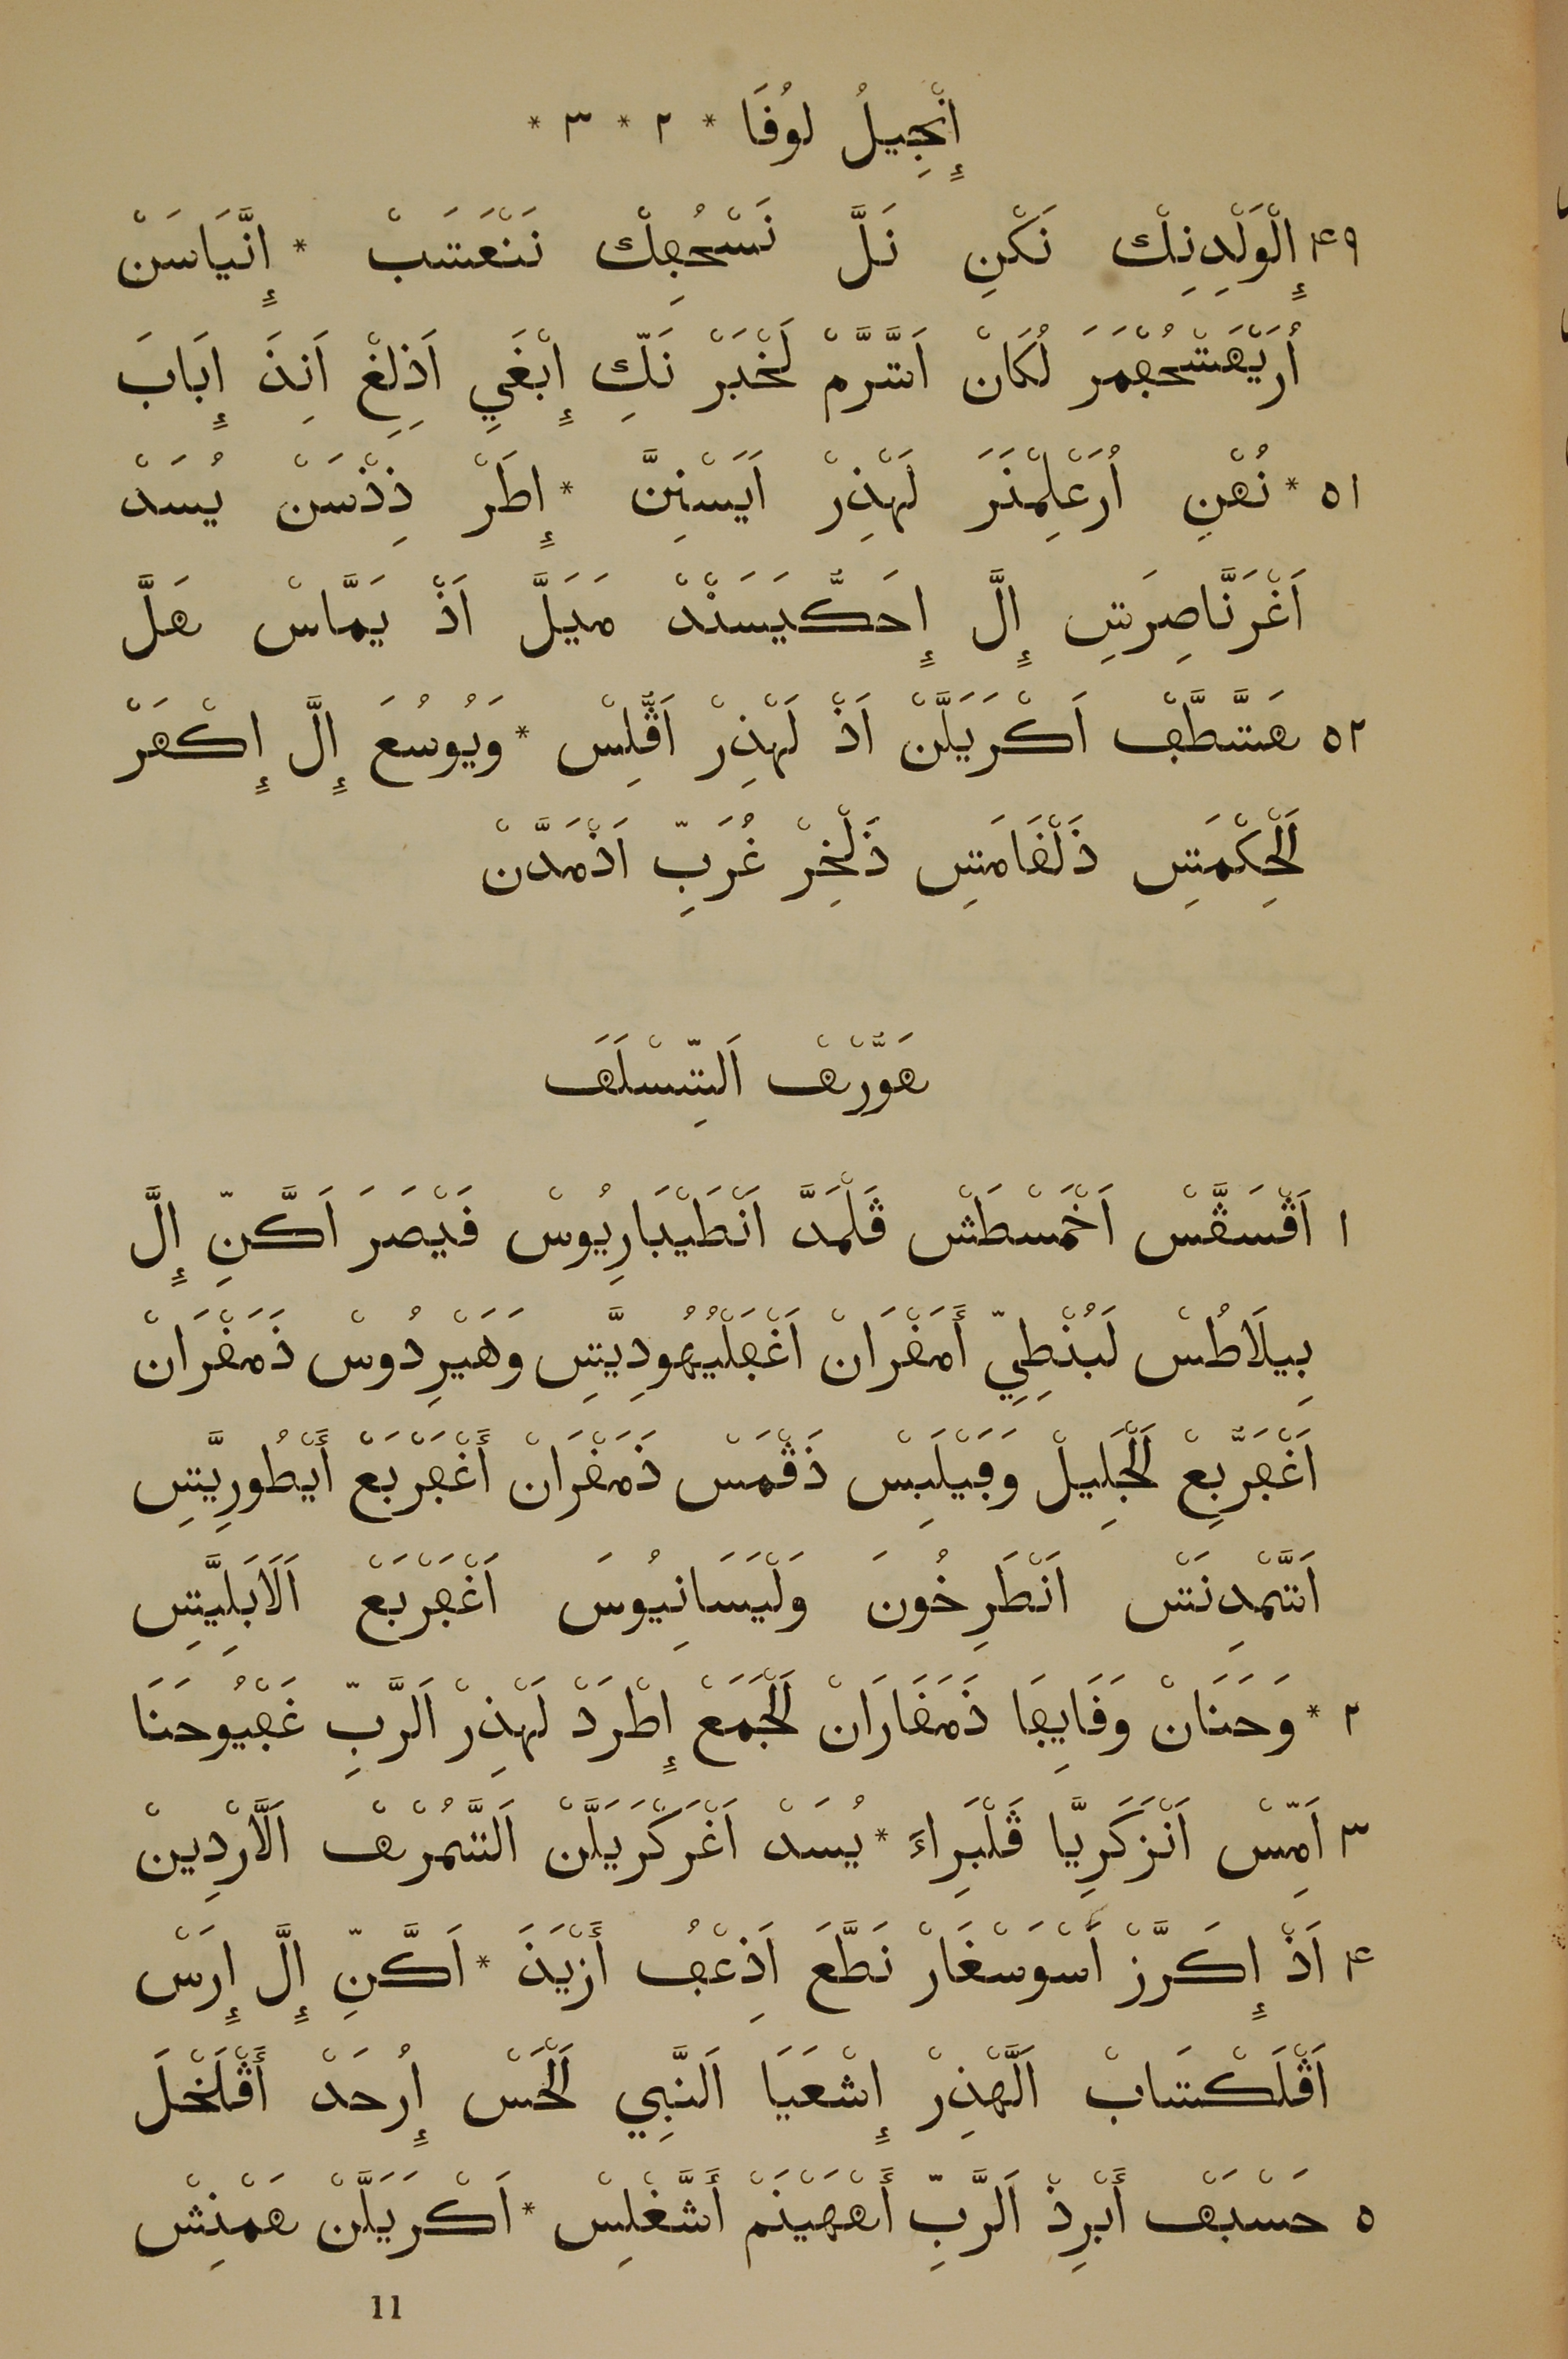 إِنْجِيلُ لوُفَا * ٢ * ٣ *
٤٩ إِلْوَلْدِنِك نَكْنِ نَلَّ نَسْحُڢِك نَنْعَتَبْ * إِنَّيَاسَنْ
أُرَيْهَتْحُڢْمَرَ لُكَانْ اَتَّرَّمْ لَخْبَرْ نَكِّ إِبْغَيِ اَذِلِغْ اَنِذَ إِبَابَ
٥١ * نُهْنِ أُرَعْلِمْنَرَ لَهْذِرْ اَيَسْنِنَّ * إِطَرْ ذِذْسَنْ يُسَدْ
اَغْرَنَّاصِرَتِ إِلَّ إِحَكُّيَسَنْدْ مَيَلَّ اَذْ يَمَّاسْ هَلَّ
٥٢ هَتَّطَّڢْ اَكْرَيَلَّنْ اَذْ لَهْذِرْ اَڨُّلِسْ * وَيُوسُعَ إِلَّ إِكْهَرْ
لَحِكْمَتِ ذَلْفَامَتِ ذَلْخِرْ غُرَبِّ اَذْمَدَّنْ
هَوَّرْهْ اَلتِّسْلَهَ
١ اَڨْسَڨَّسْ اَخْمَسْطَشْ ڨَلْمَدَّ اَنْطَيْبَارِيُوسْ فَيْصَرَ اَكَّنِّ إِلَّ
بِيلَاطُسْ لَبُنْطِيِّ أَمَفْرَانْ اَغْڢَلْيُهُودِيَّتِ وَهَيْرِدُوسْ ذَمَفْرَانْ
اَغْڢَرُّبِعْ لَجَلِيلْ وَڢَيْلَبِسْ ذَڨْمَسْ ذَمَفْرَانْ أَغْڢَرْبَعْ أَيْطُورِيَّتِ
اَتَّمْدِنَتْ اَنْطَرِخُونَ وَلْيَسَانِيُوسَ اَغْڢَرْبَعْ اَلَابَلِيَّتِ
٢ * وَحَنَانْ وَفَايِڢَا ذَمَفَارَانْ لَجْمَعْ إِطْرَدْ لَهْذِرْ اَلرَّبِّ غَڢْيُوحَنَا
٣ اَمِّسْ اَنْزَكَرِيَّا ڨَلْبَرَاءَ * يُسَدْ اَغْرَكْرَيَلَّنْ اَلتَّمُرْهْ اَلَّارْدِينْ
٤ اَذْ إِكَرَّزْ أَسْوَسْغَارْ نَطَّعَ اَذِعْڢُ أَزْيَذَ * اَكَّنِّ إِلَّ إِرَسْ
اَڨْلَكْتَابْ اَلَّهْذِرْ إِشْعَيَا اَلنَّبِي لَحَسْ إِرُحَدْ أَڨْلَخْلَ
٥ حَسْبَهْ أَبْرِذْ اَلرَّبِّ أَهْهَيْنَمْ أَشَّغْلِسْ * اَكْرَيَلَّنْ هَمْنِشْ
11